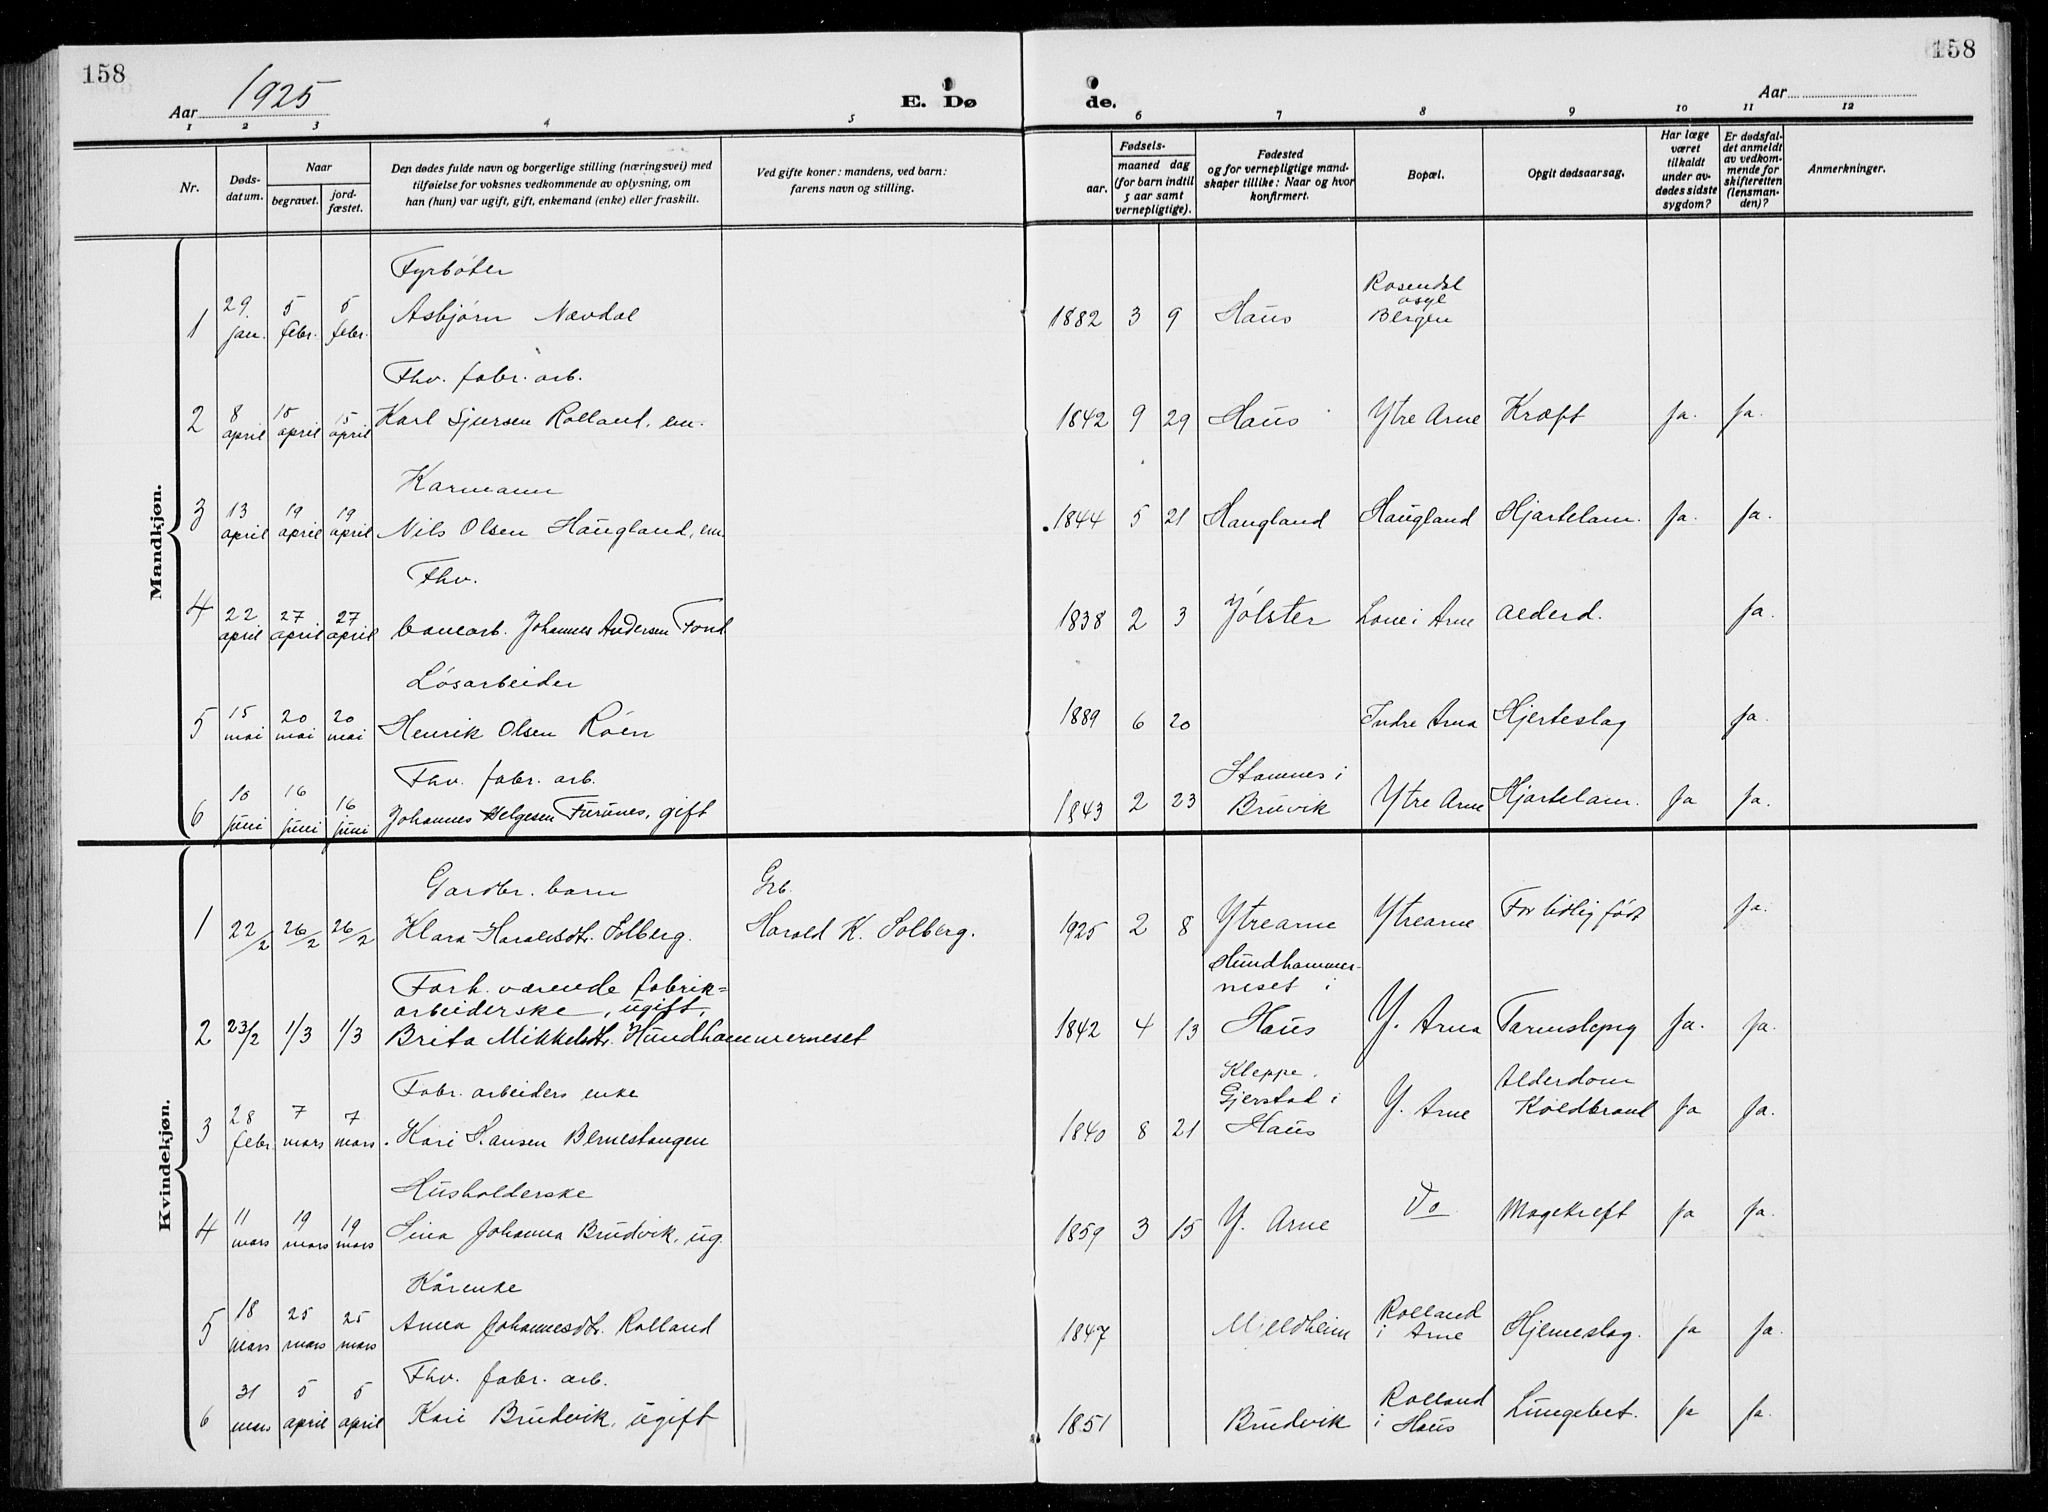 158
Aar 1925
E. Dø
de.
Aar
158
1 2 3 4 5 6 7 8 9 10 11 12
Nr.
Døds-
datum.
Naar
begravet.
jord-
fæstet.
Den dødes fulde navn og borgerlige stilling (næringsvei) med
tilføielse for voksnes vedkommende av oplysning, om
han (hun) var ugift, gift, enkemand (enke) eller fraskilt.
Ved gifte koner: mandens, ved barn:
farens navn og stilling.
Fødsels-
aar.
maaned dag
(for barn indtil
5 aar samt
vernepligtige).
Fødested
og for vernepligtige mand-
skaper tillike: Naar og hvor
konfirmert.
Bopæl.
Opgit dødsaarsag.
Har læge
været
tilkaldt
under av-
dødes sidste
sygdom?
Er dødsfal-
det anmeldt
av vedkom-
mende for
skifteretten
(lensman-
den)?
Anmerkninger.
Mandkjøn.
Fyrbøter
1 29. jan. 5 febr. 5 febr. Asbjørn Nævdal 1882 3 9 Haus Rosendal asyl Bergen
Fhv. fabr. arb.
2 8 april 15 april 15 april Karl Sjursen Rolland, em. 1842 9 29 Haus Ytre Arne Kræft Ja. Ja.
Karmann
3 13 april 19 april 19 april Nils Olsen Haugland, em. 1844 5 21 Haugland Haugland Hjartelam. Ja. Ja.
Fhv.
4 22 april 27 april 27 april banearb. Johannes Andersen Fond 1838 2 3 Jølster Lone i Arne Alderd. Ja.
Løsarbeider
5 15 mai 20 mai 20 mai Henrik Olsen Røen 1889 6 20 Indre Arna Hjerteslag Ja.
Fhv. fabr. arb.
6 10 juni 16 juni 16 juni Johannes Helgesen Furunes, gift 1843 2 23 Stamnes i Bruvik Ytre Arne Hjartelam. Ja Ja.
Kvindekjøn.
Gardbr. barn Grb.
1 22/2 26/2 26/2 Klara Haraldsdtr. Solberg. Harald K. Solberg. 1925 2 8 Ytrearne Ytrearne For tidlig født Ja.
Forh. værende fabrik=
arbeiderske, ugift,
2 23/2 1/3 1/3 Brita Mikkelsdtr. Hundhammerneset 1842 4 13 Hundhammer-neset i Haus Y. Arna Tarmslyng Ja. Ja.
Fabr. arbeiders enke
3 28 febr. 7 mars 7 mars Kari Hansen Bernestangen 1840 8 21 Kleppe, Gjerstad i Haus Y. Arne Alderdom Koldbrand Ja Ja.
Husholderske
4 11 mars 19 mars 19 mars Sina Johanna Brudvik, ug. 1859 3 15 Y. Arne Do Magekreft Ja Ja.
Kårenke
5 18 mars 25 mars 25 mars Anna Johannesdtr. Rolland 1847 Mjeldheim Rolland i Arne Hjerneslag. Ja Ja.
Fhv. fabr. arb.
6 31 mars 5 april 5 april Kari Brudvik, ugift 1851 Brudvik Rolland i Haus Lungebet. Ja Ja.